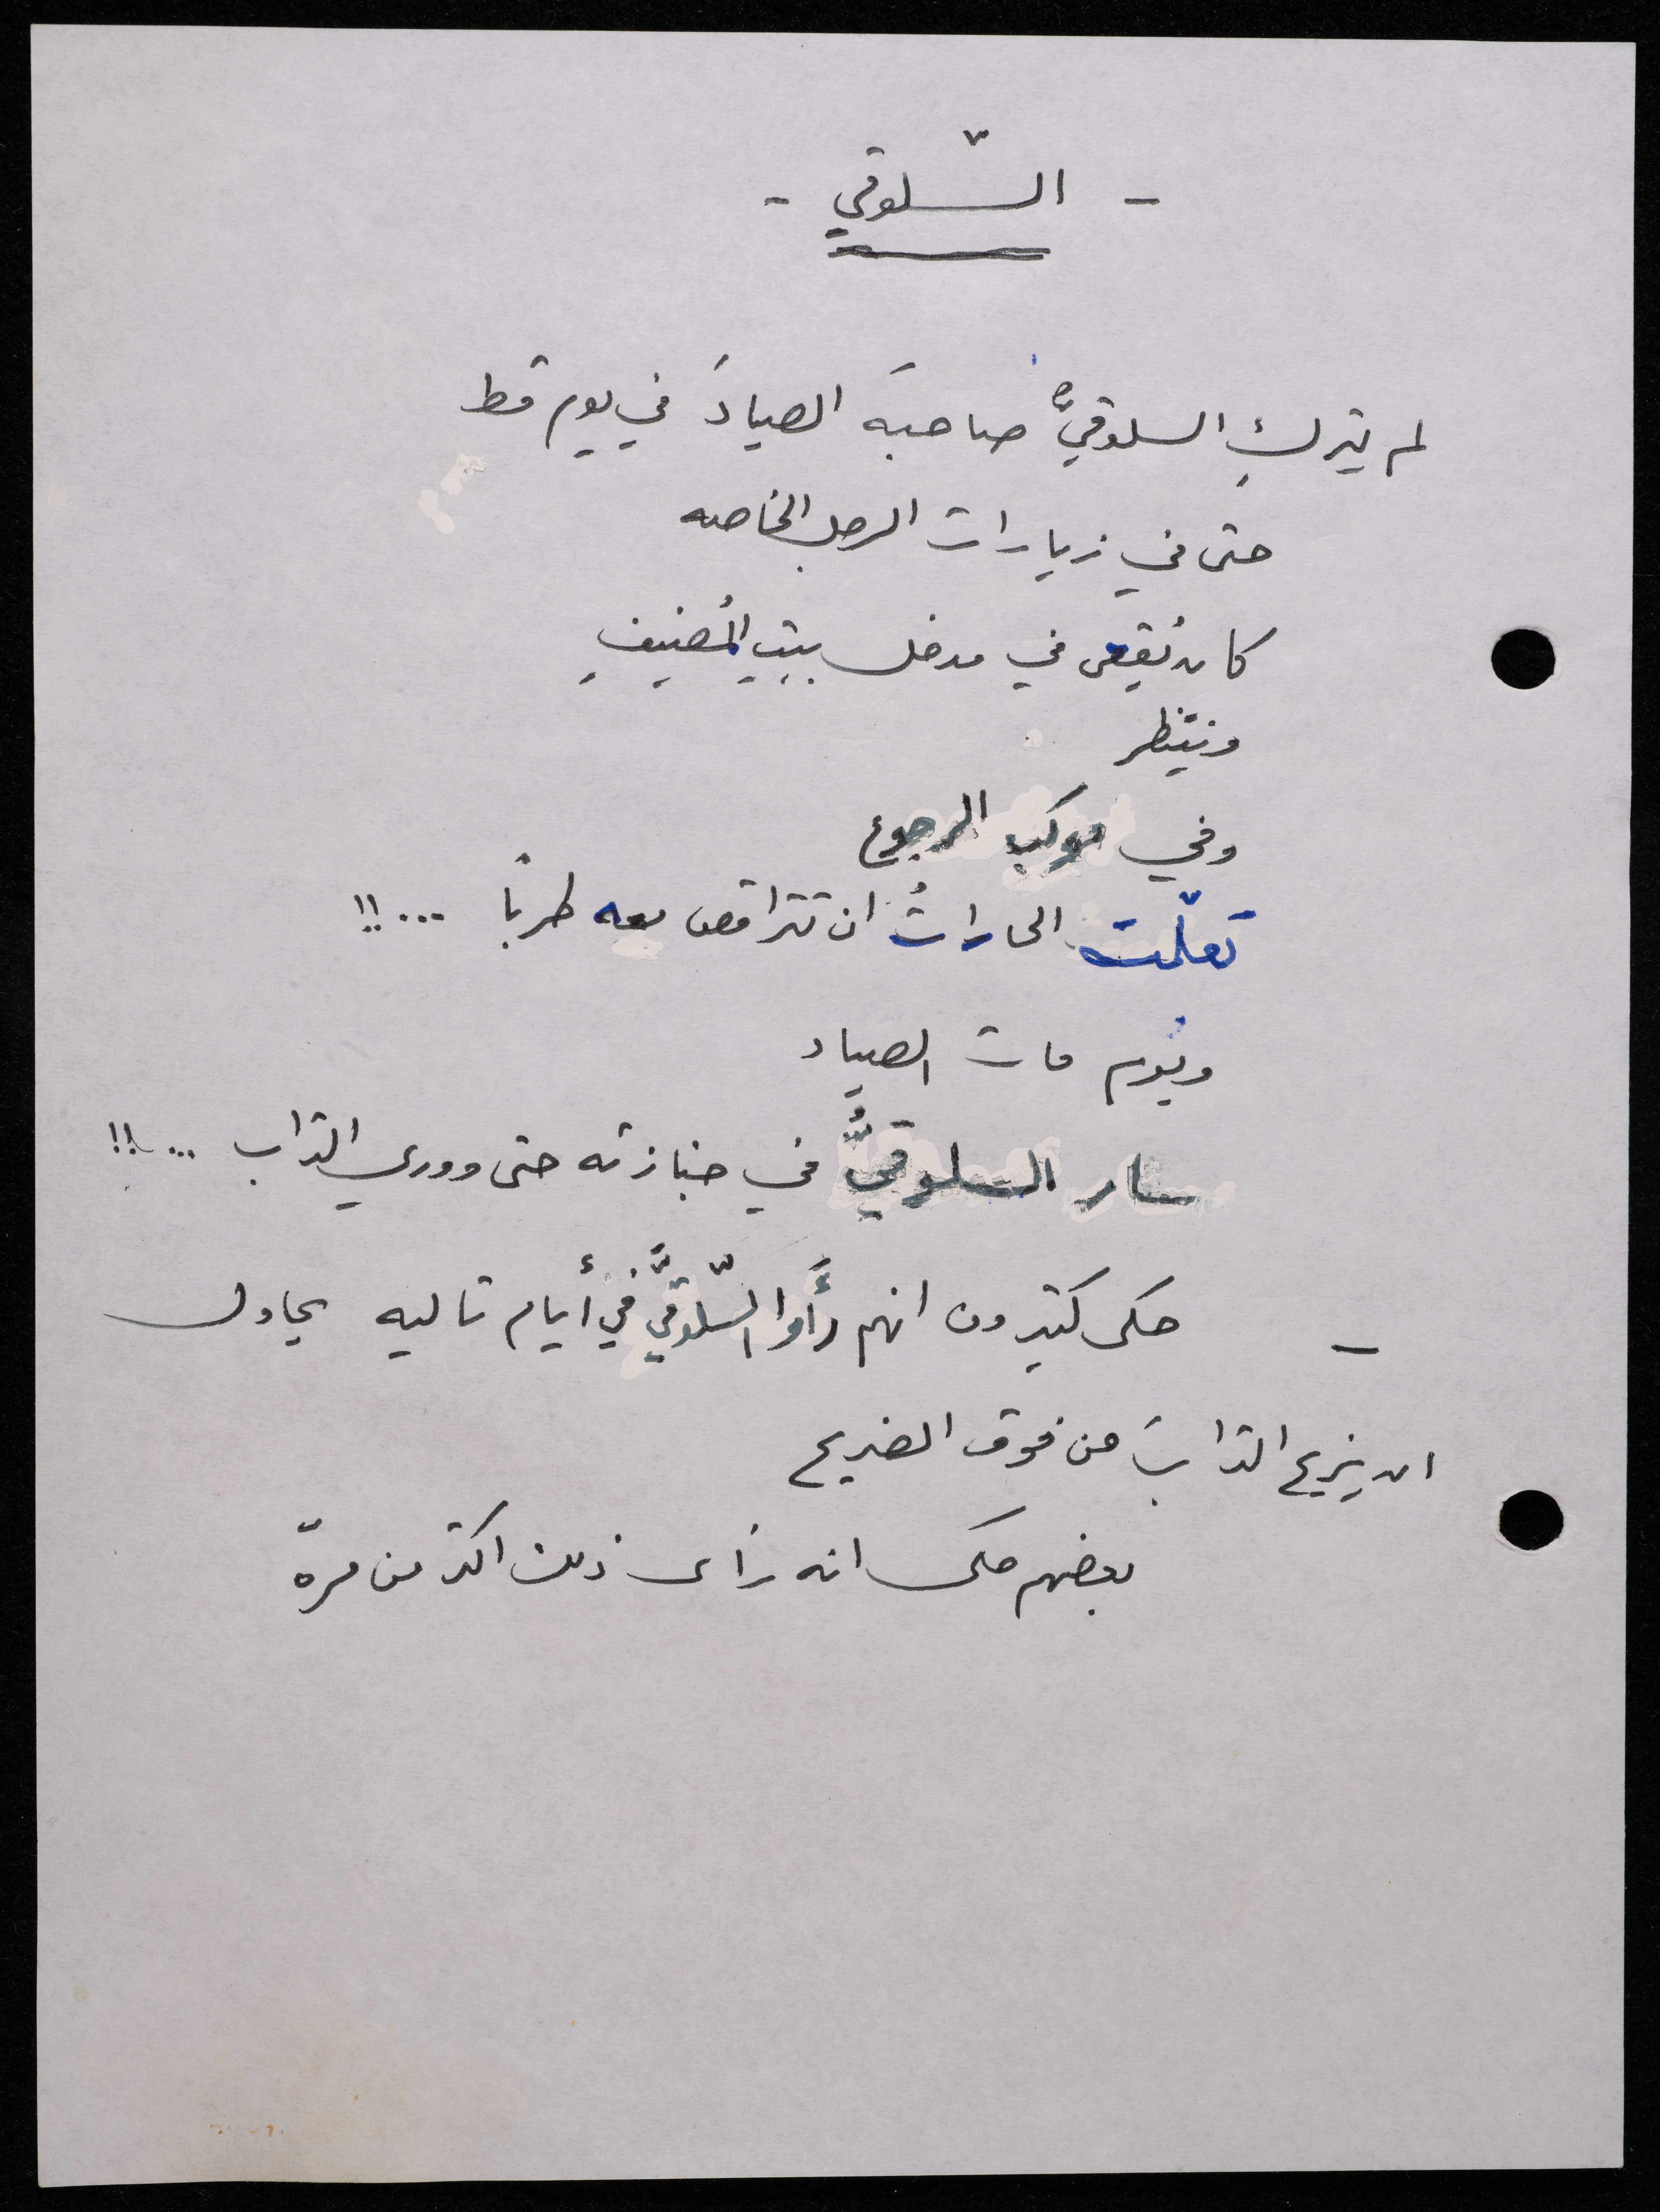 - السّلوقي -
لم يتركِ السلوقيُّ صاحبَه الصيادَ في يوم قط
حتى في زيارات الرجل الخاصه
كان يُقعى في مدخل بيتِ المُضيفِ
وينتظر
وفي موكب الرجوع
تعلّمت الحاراتُ ان تتراقص معه طربًا ...!!
ويوم مات الصياد
سار السلوقيُّ في جنازته حتى ووري التراب ...!!
- حكى كثيرون انهم رأَوا السّلوقيَّ في أيام تاليه يحاول
ان يزيح الترابَ من فوق الضريح
بعضهم حكى انه رأى ذلك اكثر من مرّه